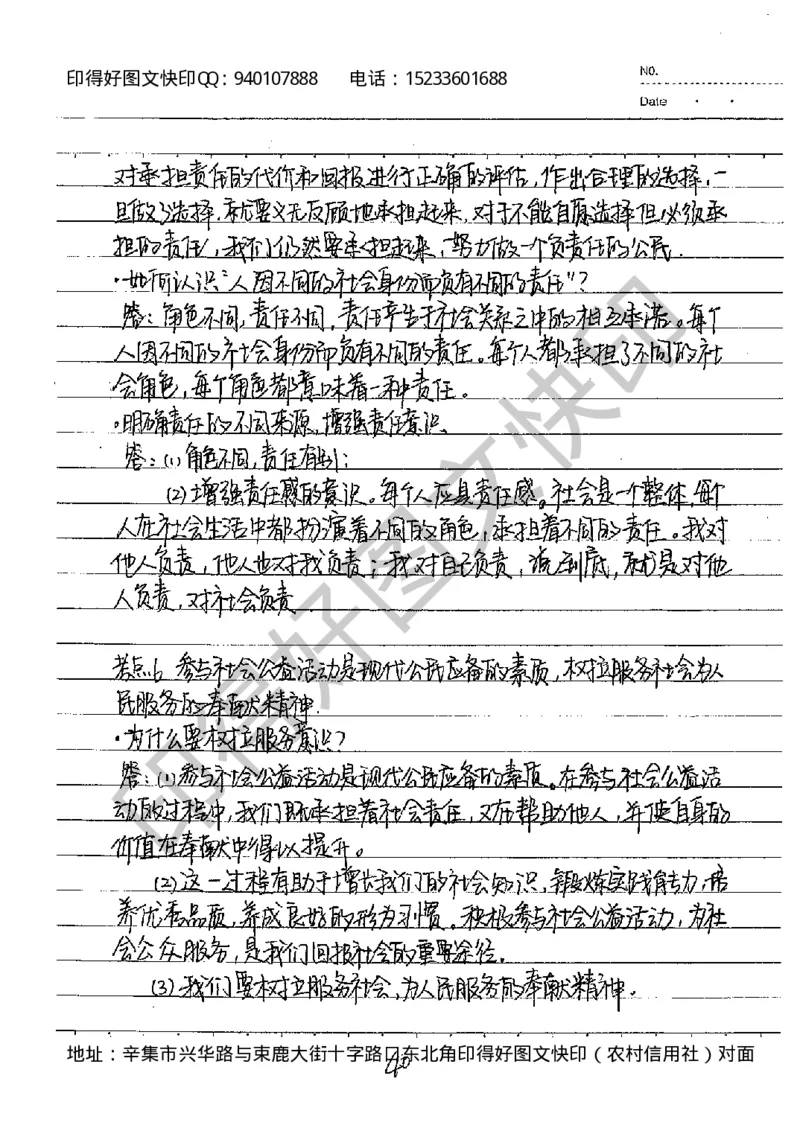 印得好图文快印QQ：940107888 电话：15233601688
No.
Date
对承担责任的代价和回报进行正确的评估，作出合理的选择，一
旦做了选择，就要义无反顾地承担起来，对于不能自愿选择但必须承
担的责任，我们仍然要承担起来，努力做一个负责任的公民．
·如何认识“人因不同的社会身份而负有不同的责任”？
答：角色不同，责任不同，责任产生于社会关系之中的相互承诺。每个
人因不同的社会身份而负有不同的责任。每个人都承担了不同的社
会角色，每个角色都意味着一种责任。
·明确责任的不同来源，增强责任意识．
答：（1）角色不同，责任有别；
（2）增强责任感的意识。每个人应具责任感。社会是一个整体，每个
人在社会生活中都扮演着不同的角色，承担着不同的责任。我对
他人负责，他人也对我负责；我对自己负责，说到底，就是对他
人负责，对社会负责．
考点6 参与社会公益活动是现代公民应备的素质，树立服务社会为人
民服务的奉献精神．
·为什么要树立服务意识？
答：（1）参与社会公益活动是现代公民应备的素质。在参与社会公益活
动的过程中，我们既承担着社会责任，又在帮助他人，并使自身的
价值在奉献中得以提升。
（2）这一过程有助于增长我们的社会知识，锻炼实践能力，培
养优秀品质，养成良好的行为习惯。积极参与社会公益活动，为社
会公众服务，是我们回报社会的重要途径．
（3）我们要树立服务社会，为人民服务的奉献精神．
地址：辛集市兴华路与束鹿大街十字路口东北角印得好图文快印（农村信用社）对面
40
印得好图文快印